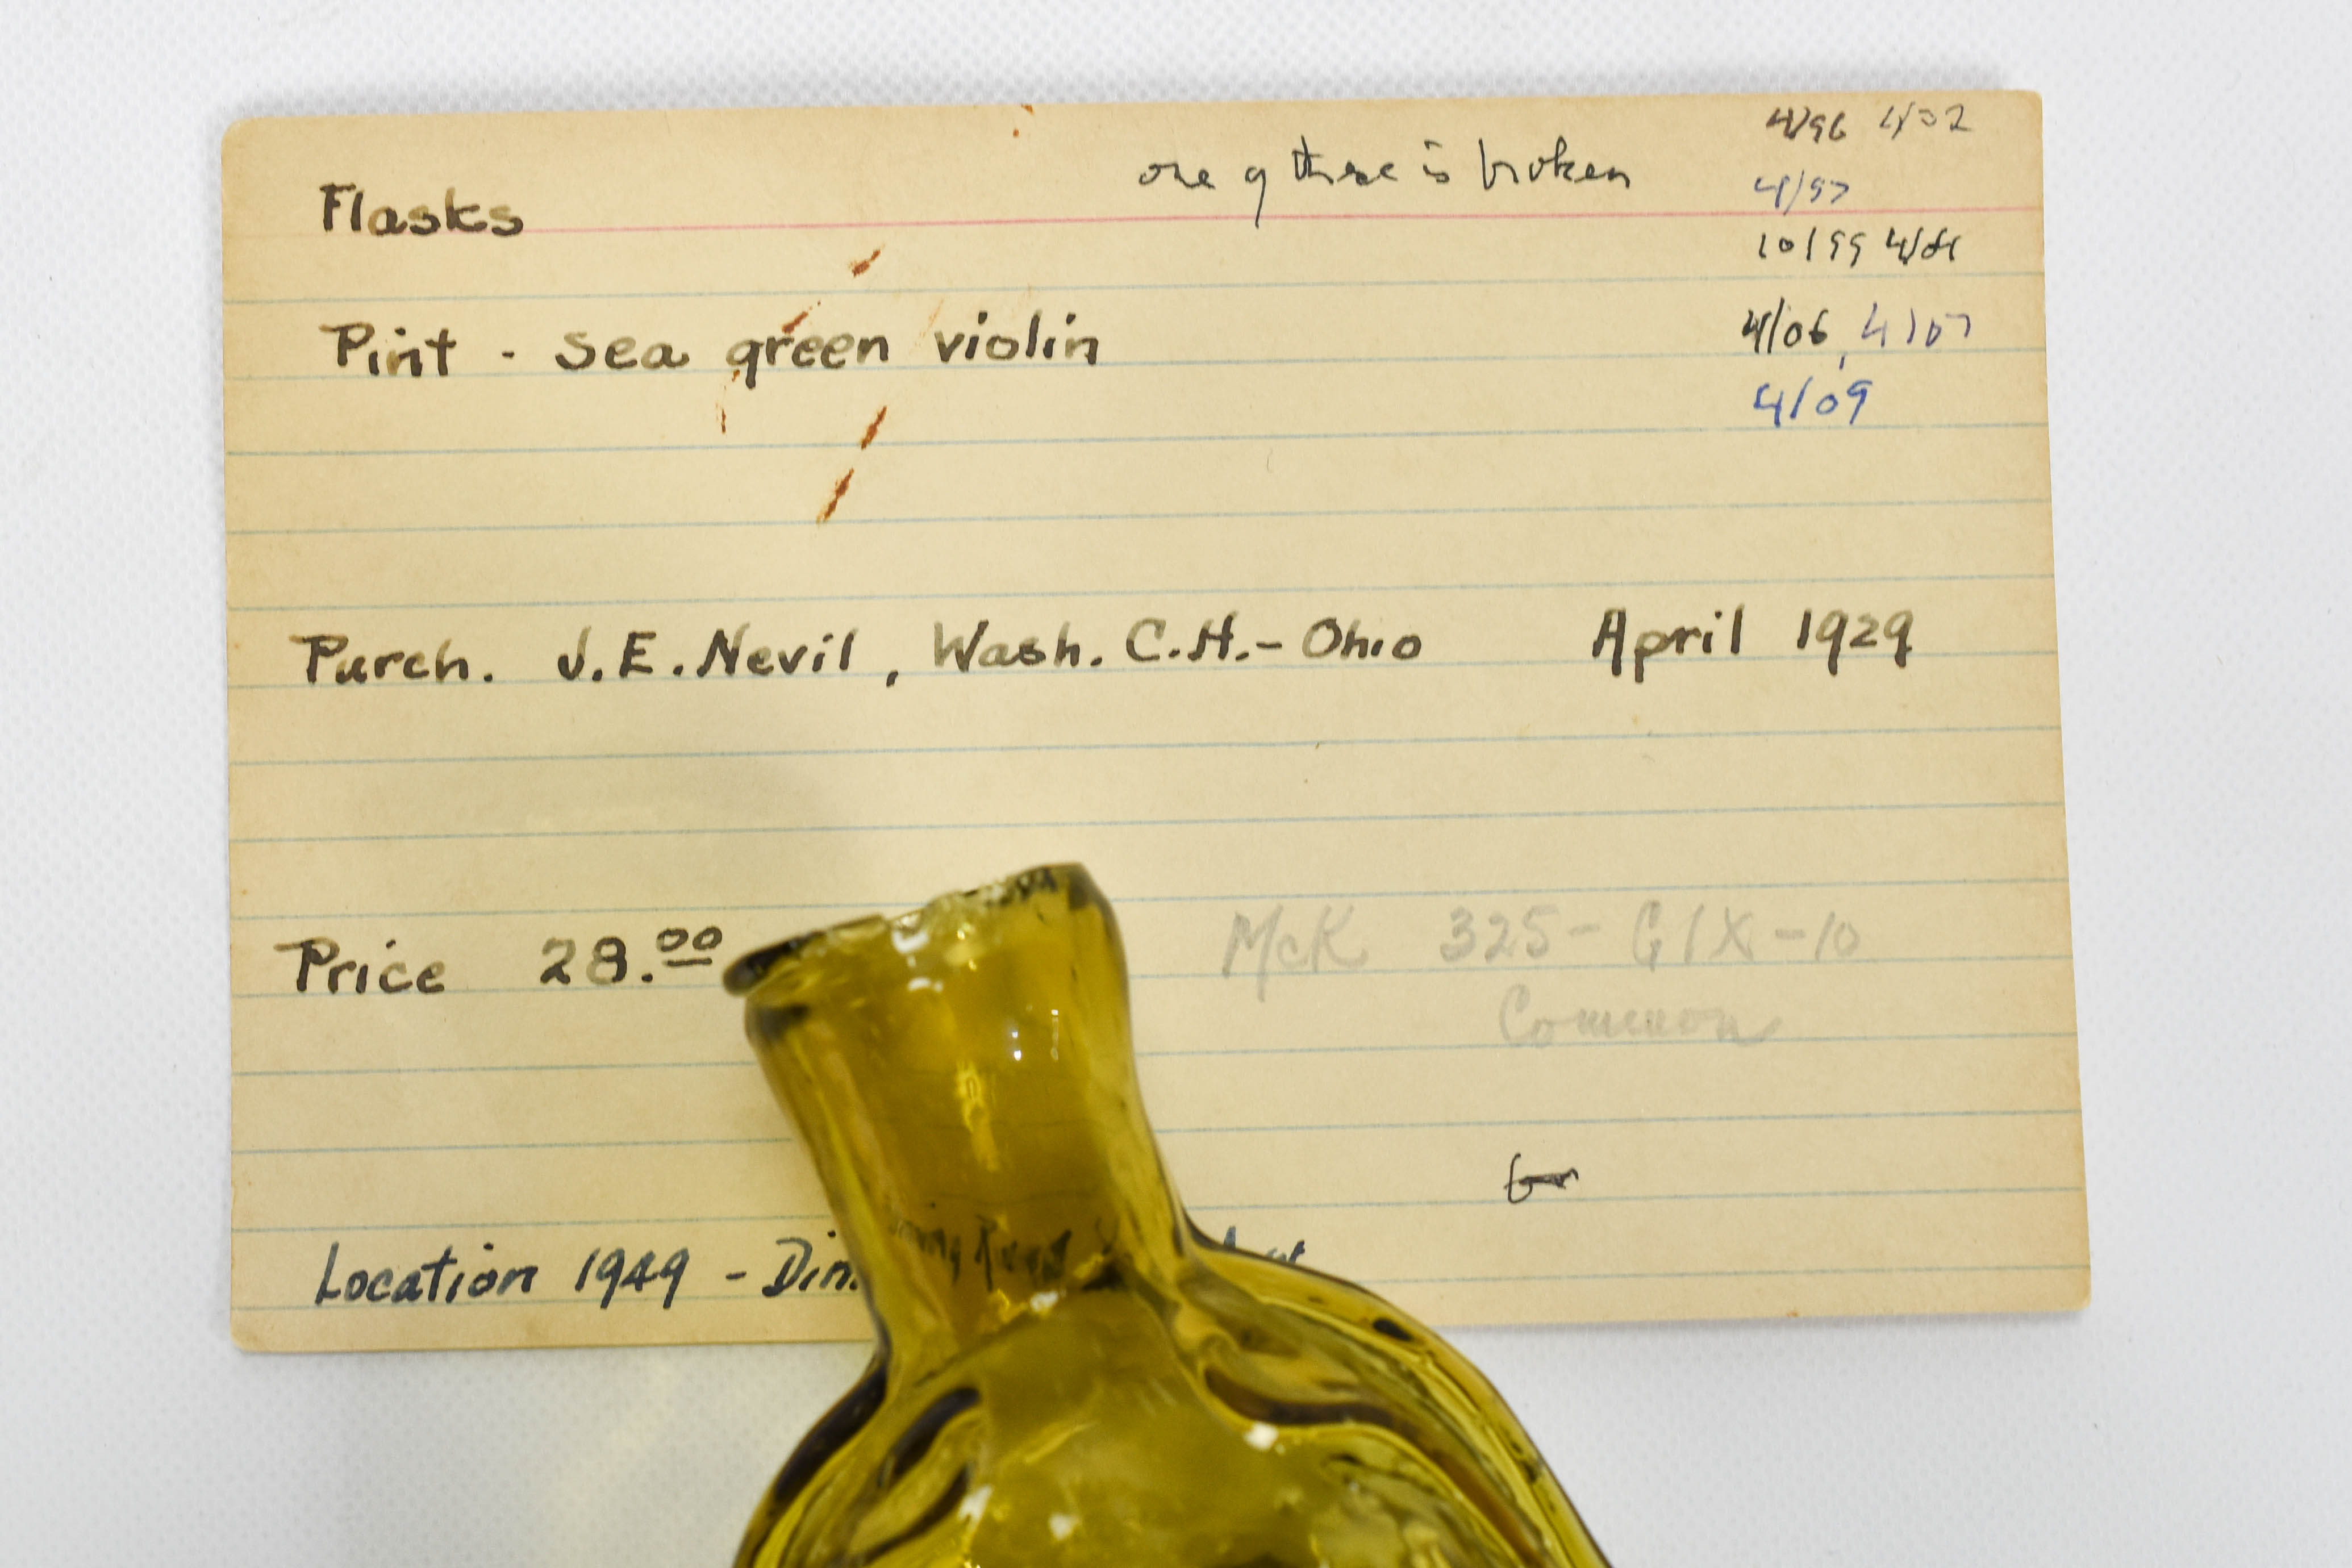 4/96 4/02
one of these is broken
4/97
Flasks
10/99 4/01
Pint - sea green violin
4/06, 4/07
4/09
Purch. J.E. Nevil, Wash. C.H. - Ohio April 1929
Price 28.00
McK 325 - G IX - 10
Common
Location 1949 - Din